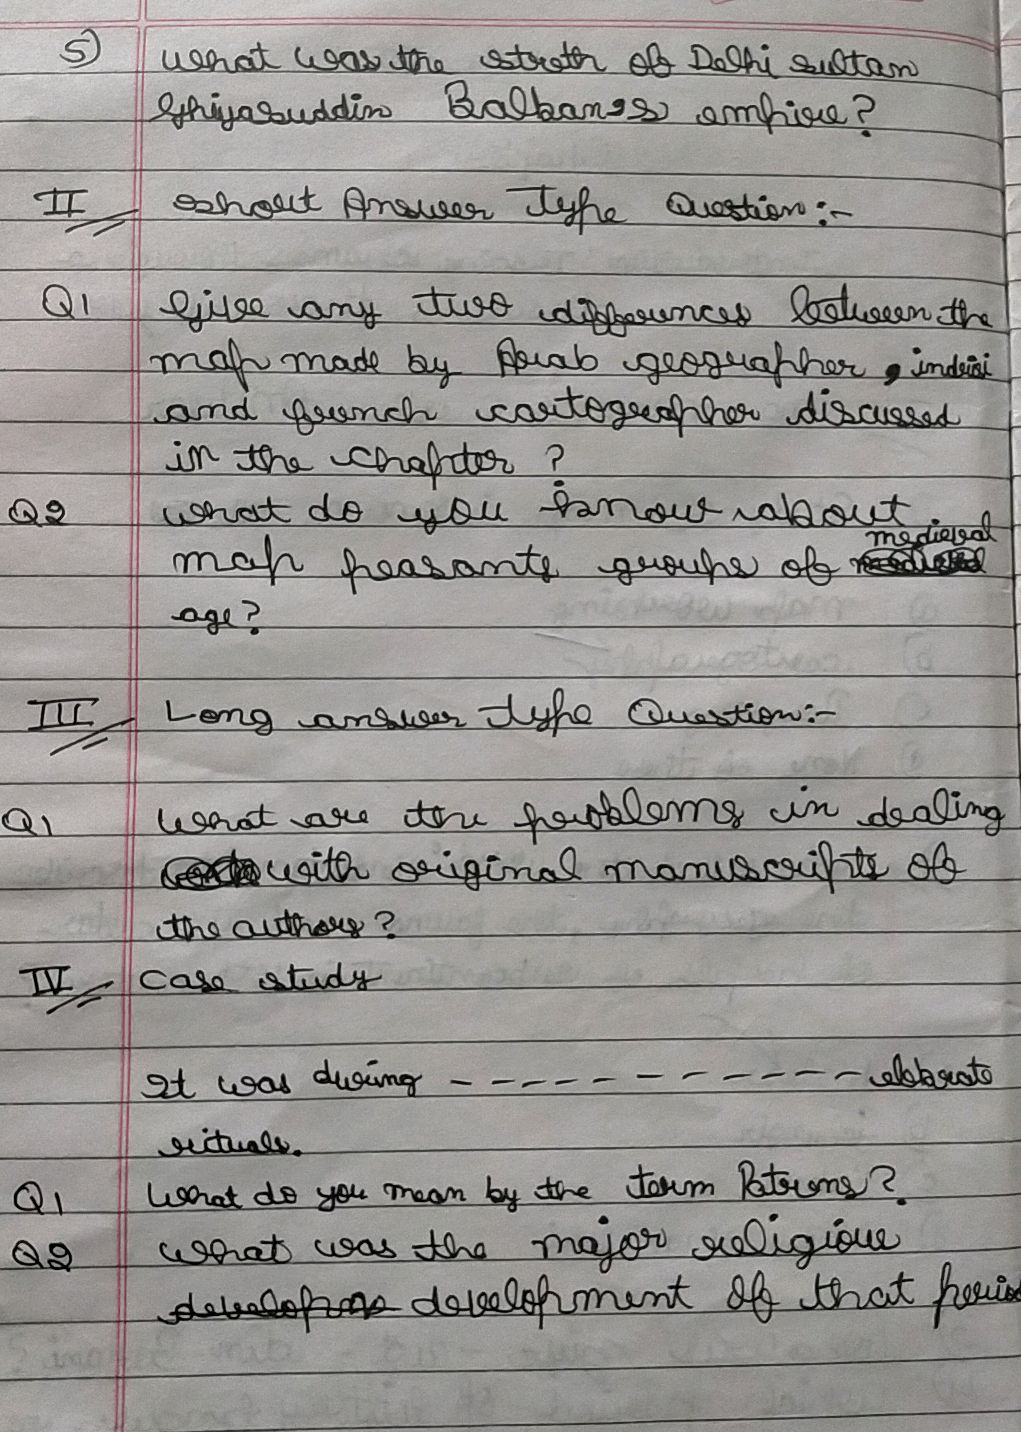 5) What was the streth of Delhi sultan
Ghiyasuddin Balban's empire?
II Short Answer Type Question:-
Q1 Give any two differences between the
map made by Arab geographer, indrisi
and french cartographer discussed
in the chapter ?
Q2 What do you know about
map peasants groups of medieval
age?
III Long answer type Question:-
Q1 What are the problems in dealing
with original manuscripts of
the authors?
IV Case study
It was during ------------- elobrate
rituals.
Q1 What do you mean by the term Patrons?
Q2 What was the major religious
development of that period